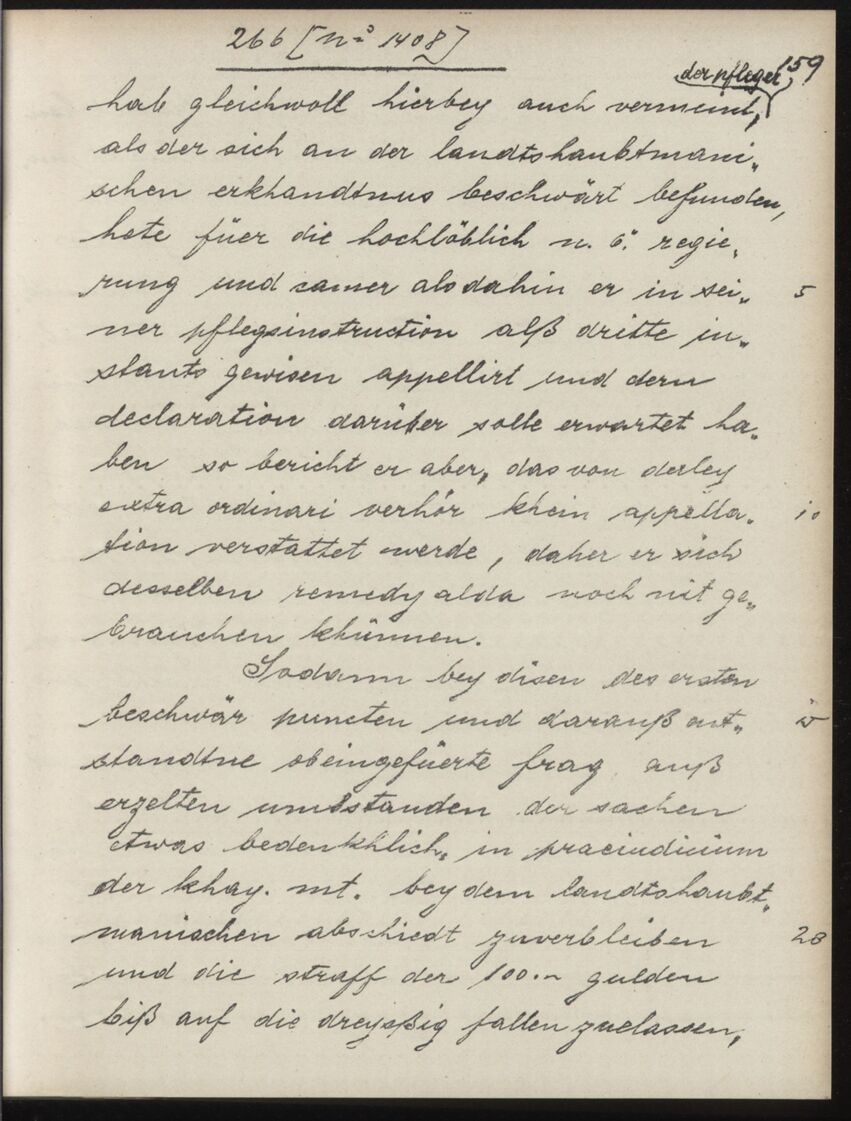 266 [N-o 1408]
159
der pfleger
hab gleichwoll hierbey auch vermeint,
als der sich an der landtshaubtmani„
schen erkhandtnus beschwärt befunden,
hete füer die hochlöblich n. ö. regie„
rung und camer alsdahin er in sei„ 5
ner pflegsinstruction alß dritte in„
stants gewisen appellirt und dern
declaration darüber solle erwartet ha„
ben so bericht er aber, das von derley
extra ordinari verhör khein appella„ 10
tion verstattet werde, daher er sich
desselben remedy alda noch nit ge„
brauchen khünnen.
Sodann bey disen des ersten
beschwär puncten und darauß ent„ 15
standtne obeingefüerte frag auß
erzelten umbstanden der sachen
etwas bedenkhlich, in praeiudicium
der khay. mt. bey dem landtshaubt„
manischen abschiedt zuverbleiben 20
und die straff der 100.– gulden
biß auf die dreyssig fallen zuelassen,